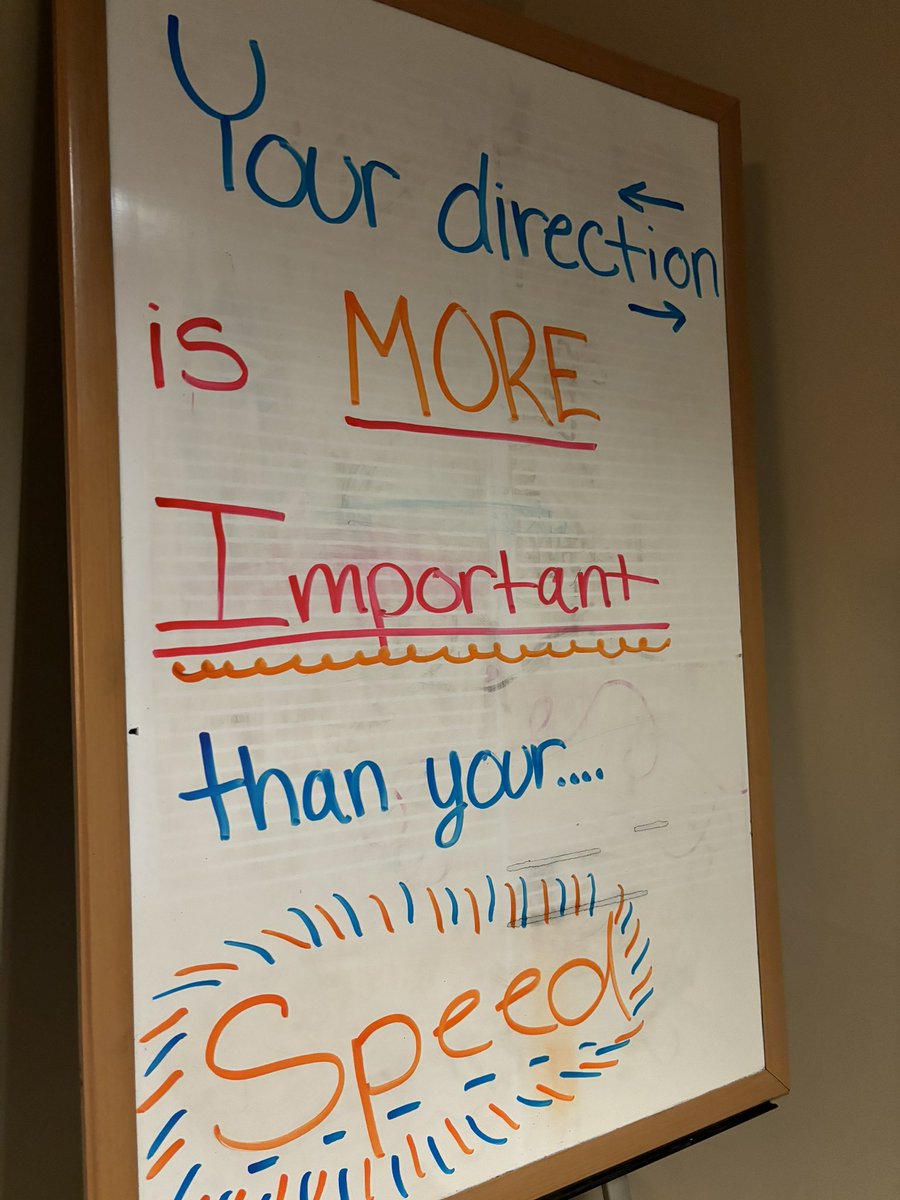 Your direction
is MORE
Important
than your....
Speed